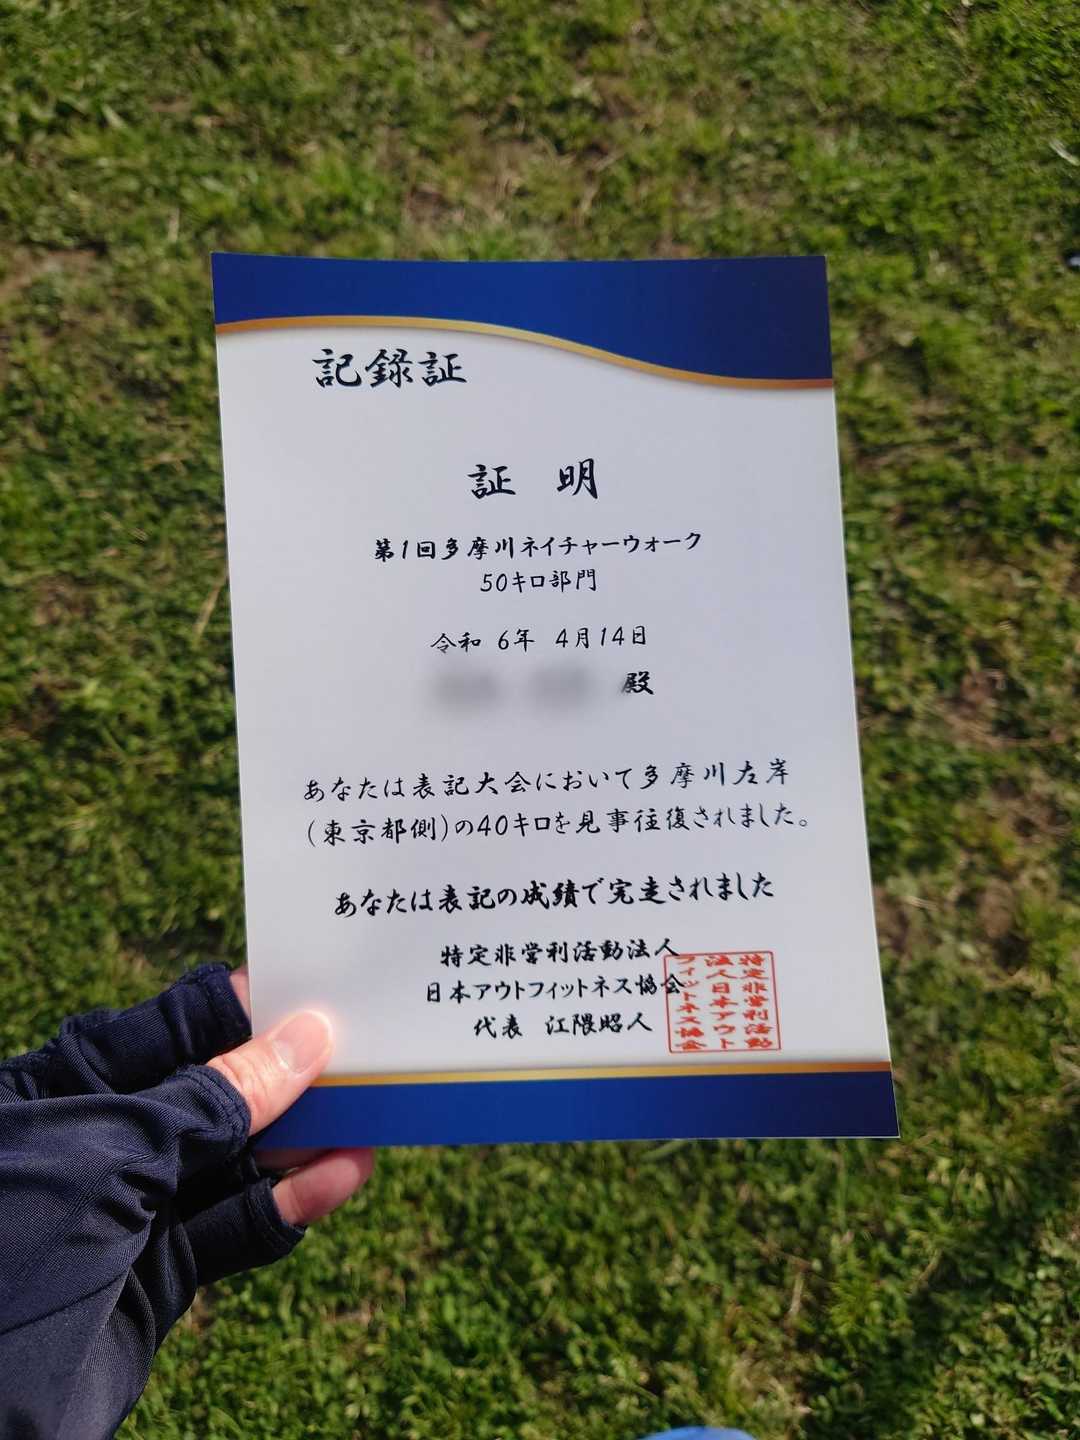 記録証
証 明
第1回多摩川ネイチャーウォーク
50キロ部門
令和 6年 4月14日
殿
あなたは表記大会において多摩川左岸
(東京都側)の40キロを見事往復されました。
あなたは表記の成績で完走されました
特定非営利活動法人
日本アウトフィットネス協会
代表 江隈昭人
特定非営利活動
法人日本アウト
フィットネス協会